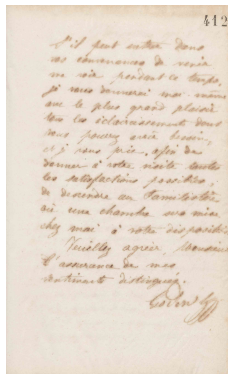 412
S'il peut entrer dans
vos convenances de venir
me voir pendant ce temps,
je vous donnerai moi même
avec le plus grand plaisir
tous les éclaircissements dont
vous pourrez avoir besoin,
et je vous prie, afin de
donner à votre visite toutes
les satisfactions possibles,
de descendre au familistère
où une chambre sera mise
chez moi à votre disposition
Veuillez agréer, Monsieur
l'assurance de mes
sentiments distingués.
Godin